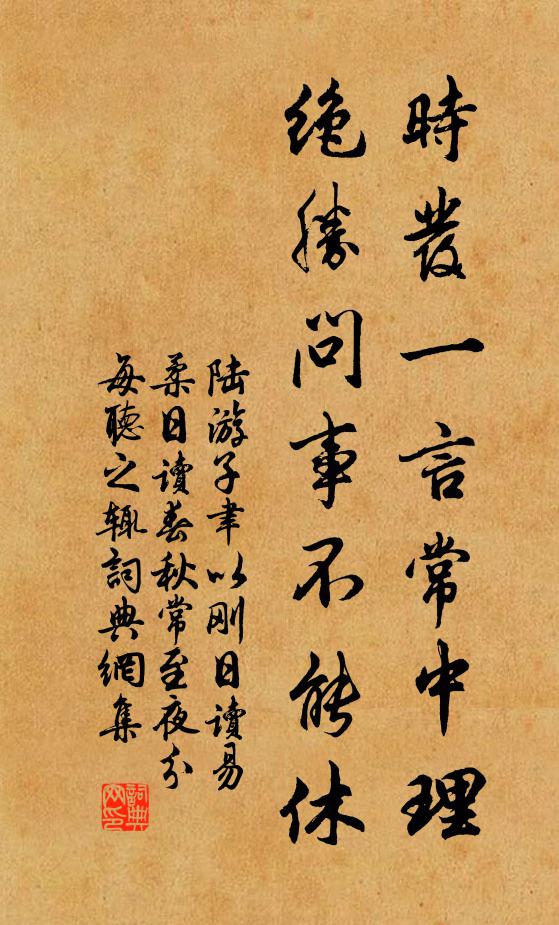 時發一言常中理
絶勝問事不能休
陸游子聿以刚日讀易
柔日讀春秋常至夜分
每聽之輒詞典網集
詞典
网印